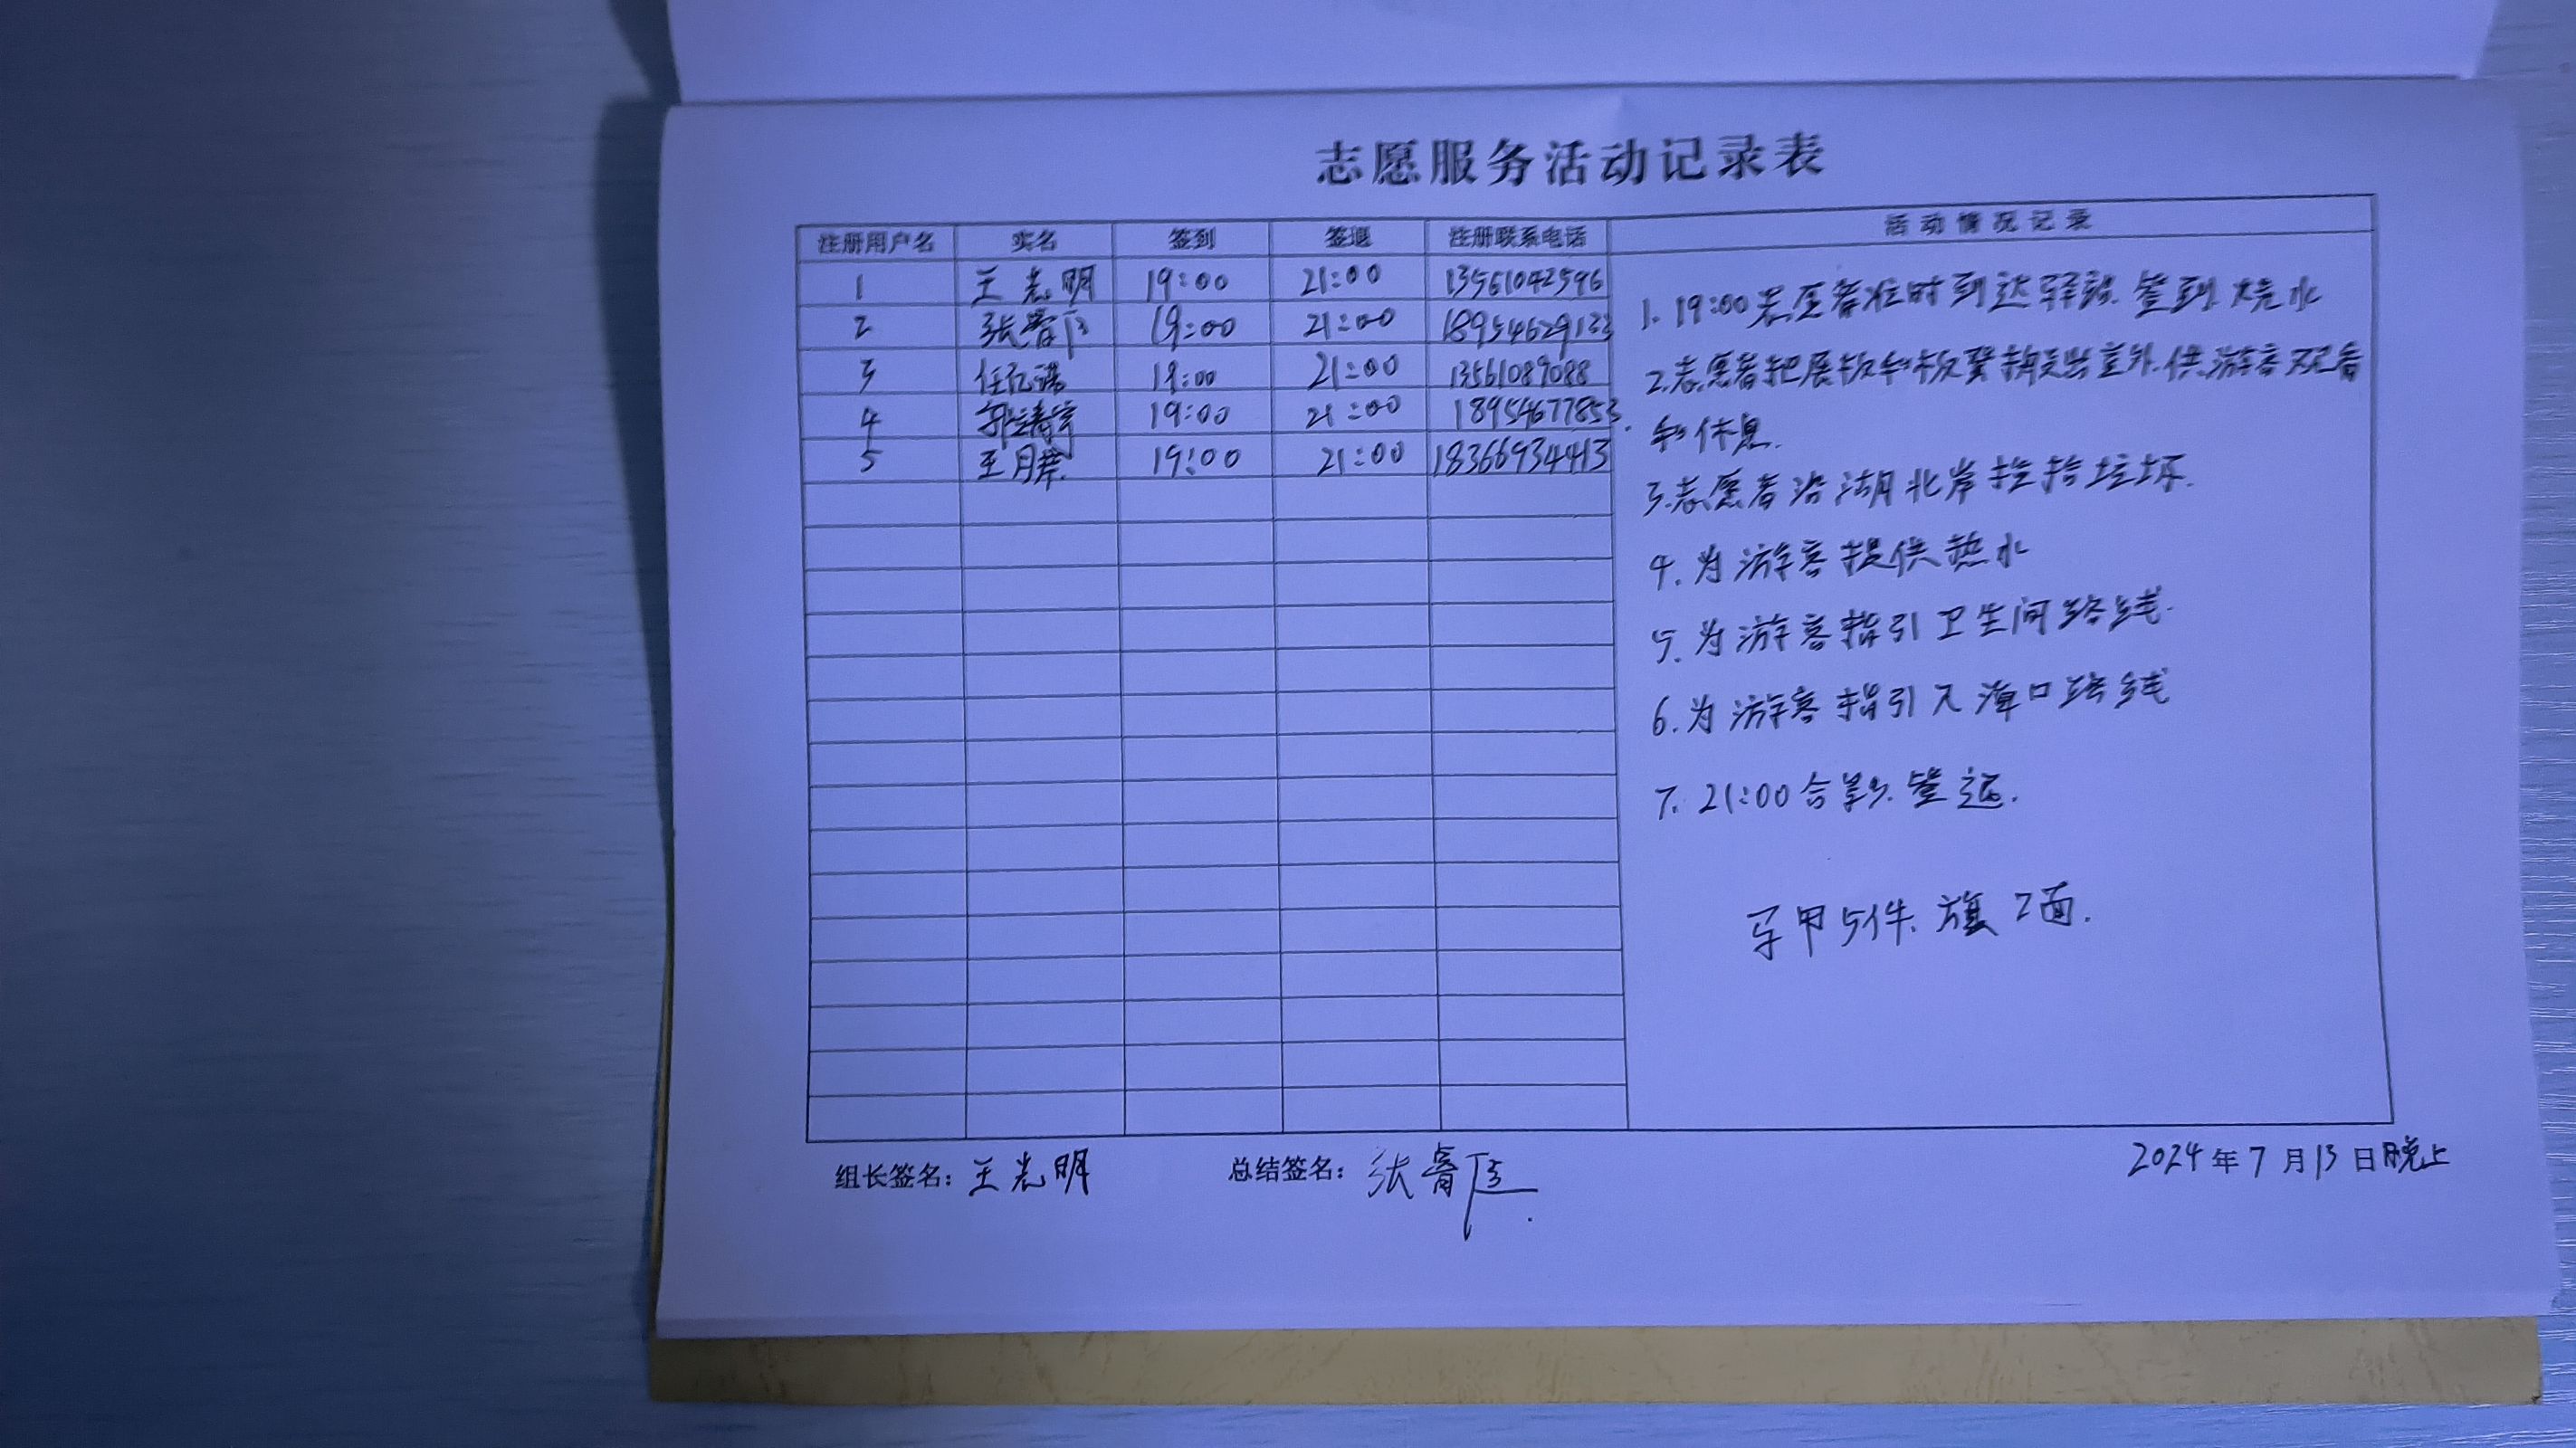 志愿服务活动记录表
注册用户名 实名 签到 签退 注册联系电话 活动情况记录
1 王志明 19:00 21:00 13561042596
2 19:00 21:00 18954629133
3 19:00 21:00 13561089088
4 19:00 21:00 18954677853.
5 王月 19:00 21:00 18366934413
1. 19:00志愿者准时到达驿站.签到.烧水
2.志愿者把展板和板凳搬出室外.供游客观看
和休息.
3.志愿者沿湖北岸捡拾垃圾.
4.为游客提供热水
5.为游客指引卫生间路线.
6.为游客指引入海口路线
7. 21:00合影.签退.
马甲5件.旗2面.
组长签名：王志明 总结签名：张 2024年7月13日晚上